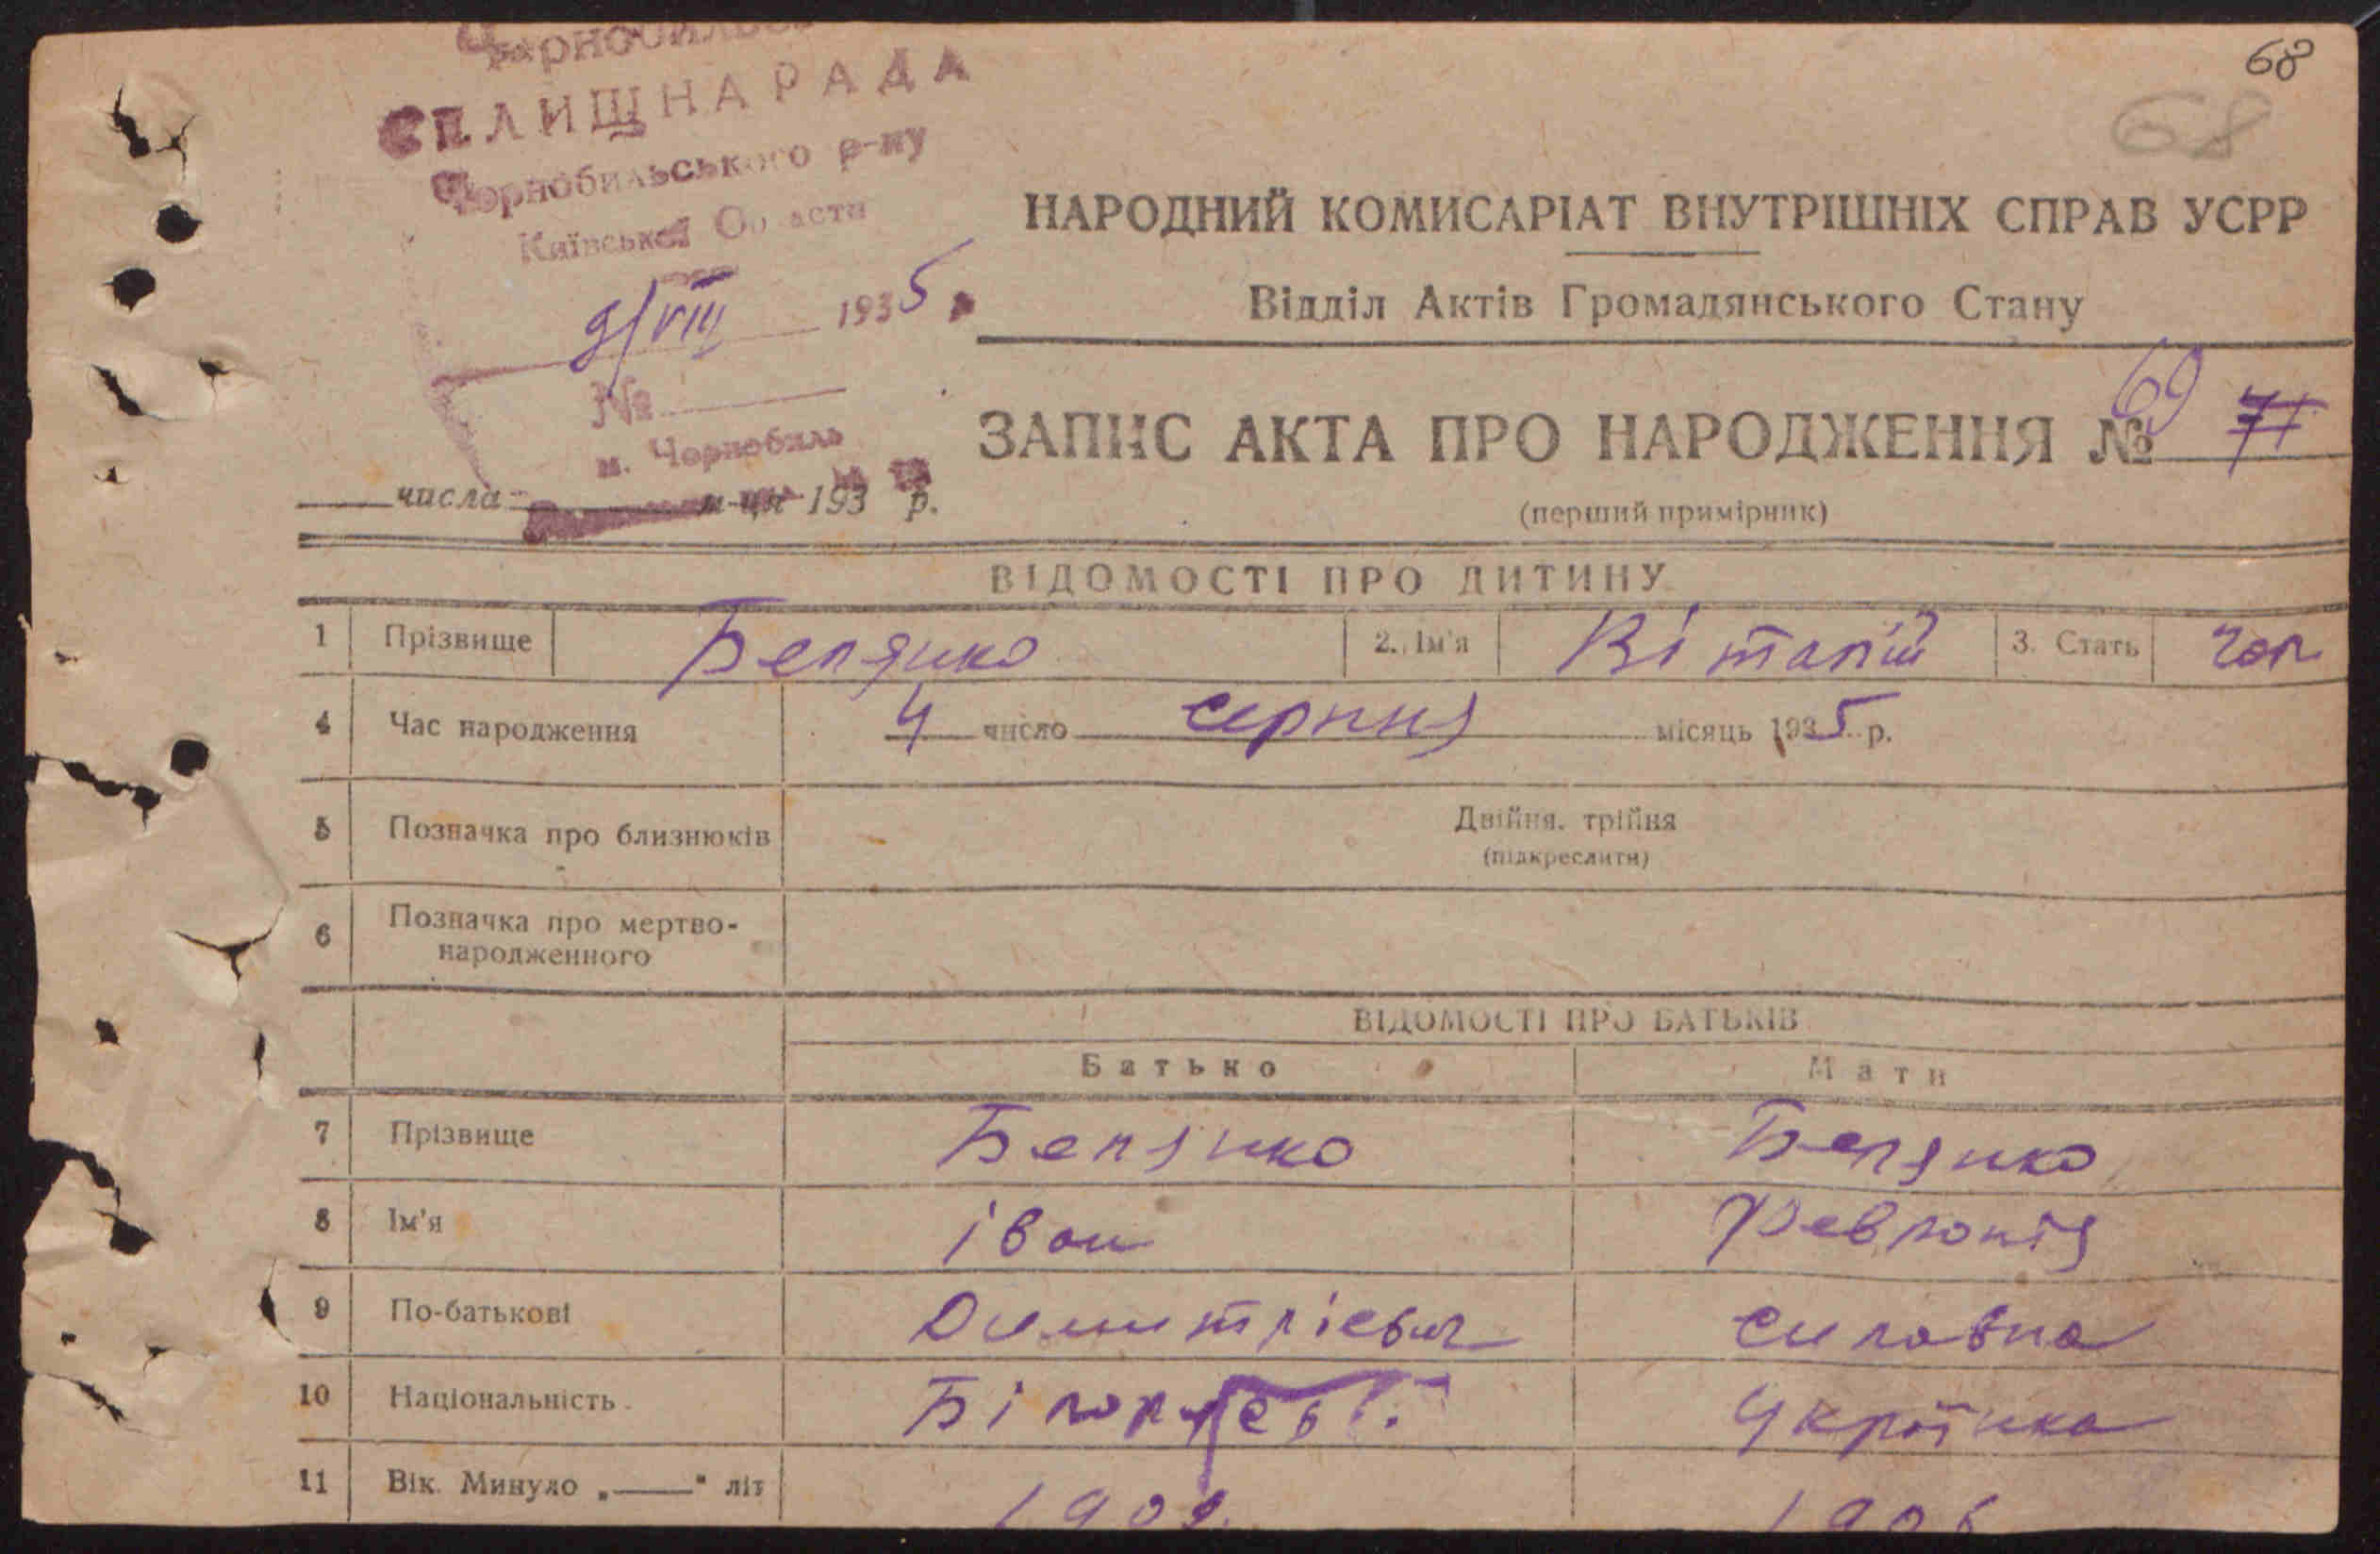 68
68
РАДА
Чорнобильського р-ну
Київської Области
9/VIII 1935
№
м. Чорнобиль
числа м-ця 193 р.
НАРОДНИЙ КОМИСАРІАТ ВНУТРІШНІХ СПРАВ УСРР
Відділ Актів Громадянського Стану
ЗАПИС АКТА ПРО НАРОДЖЕННЯ № 69 71
(перший примірник)
ВІДОМОСТІ ПРО ДИТИНУ
1 Прізвище Белянко 2. Ім'я Віталій 3. Стать чол
4 Час народження 4 число серпня місяць 1935 р.
5 Позначка про близнюків Двійня, трійня
(підкреслити)
6 Позначка про мертво-
народженного
ВІДОМОСТІ ПРО БАТЬКІВ
Батько Мати
7 Прізвище Белянко Белянко
8 Ім'я Іван Февронія
9 По-батькові Димитрієвич Силовна
10 Національність Українка
11 Вік. Минуло „——" літ 1909. 1906